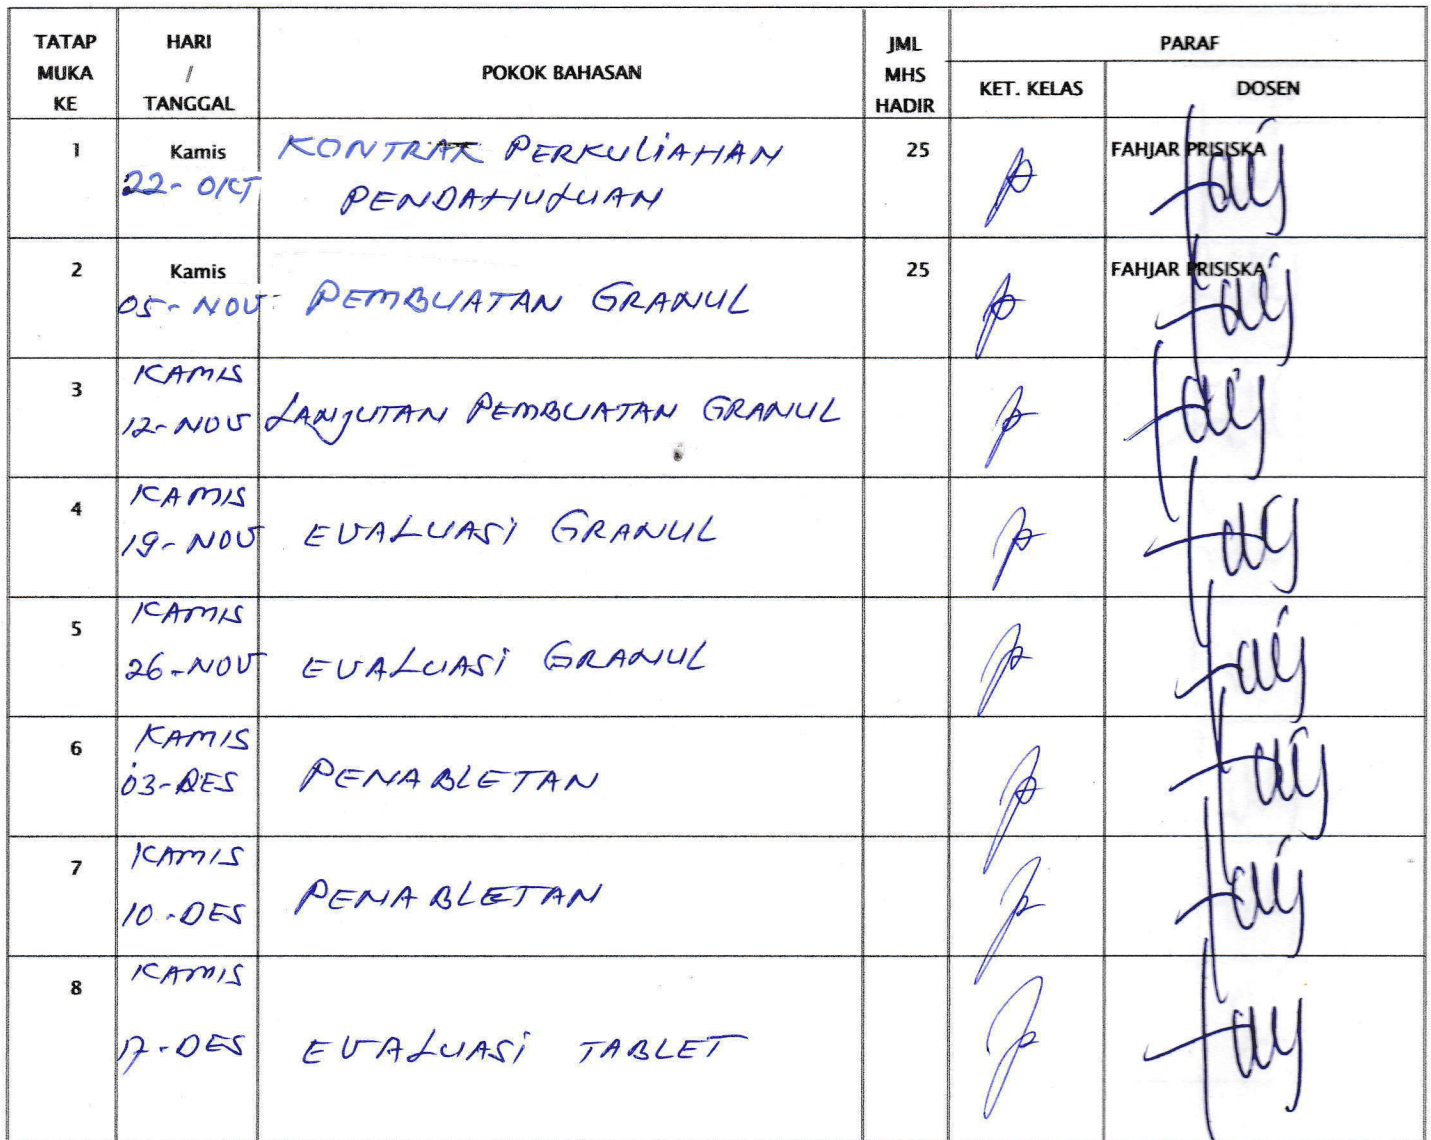 TATAP MUKA KE
HARI / TANGGAL
POKOK BAHASAN
JML MHS HADIR
PARAF
KET. KELAS
DOSEN
1
Kamis
22- OKT
KONTRAK PERKULiAHAN
PENDAHULUAN
25
FAHJAR PRISISKA
2
Kamis
05- NOV
PEMBUATAN GRANUL
25
FAHJAR PRISISKA
3
KAMIS
12- NOV
LANJUTAN PEMBUATAN GRANUL
4
KAMIS
19- NOV
EVALUASi GRANUL
5
KAMIS
26-NOV
EVALUASi GRANUL
6
KAMIS
03-DES
PENABLETAN
7
KAMIS
10-DES
PENABLETAN
8
KAMIS
17-DES
EVALUASi TABLET